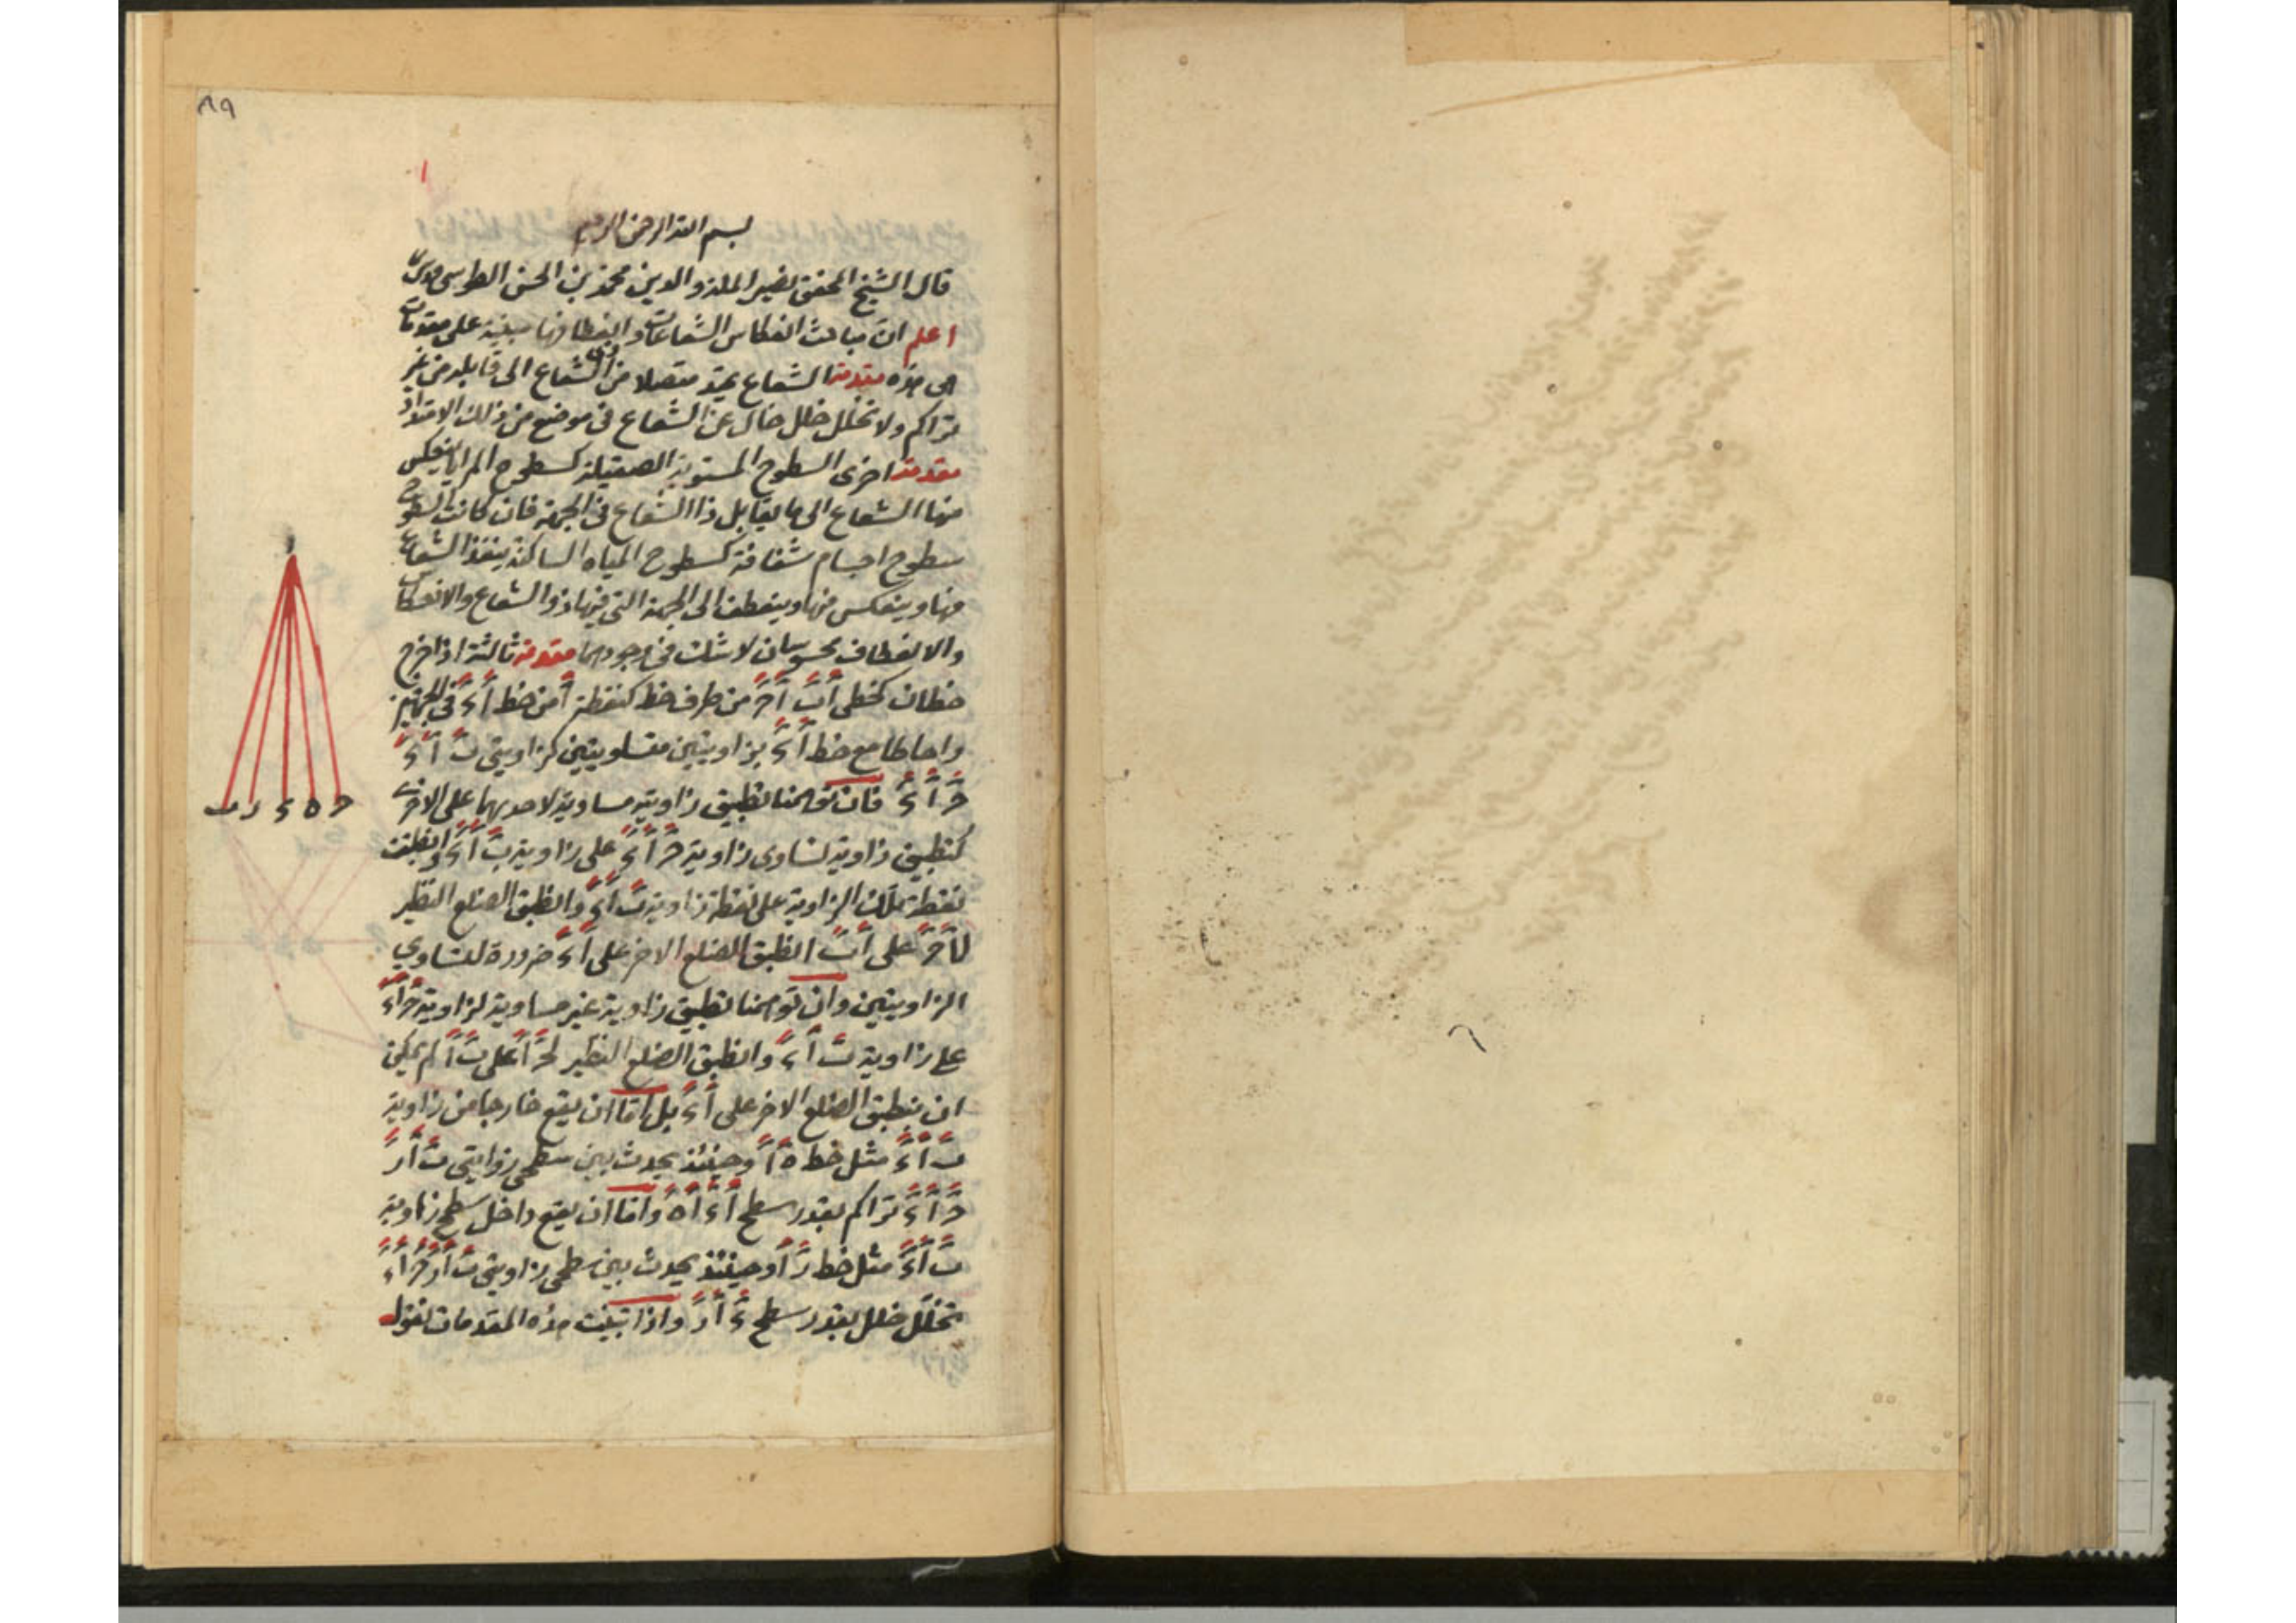 ٨٩
١
بسم الله الرحمن الرحيم
قال الشيخ المحقق نصير الملة والدين محمد بن الحسن الطوسي
اعلم ان مباحث انعكاس الشعاعات وانعطافها مبنية على مقدمات
هى هذه مقدمة الشعاع يمتد متصلا من ذى الشعاع الى قابله من غير
تراكم ولا تخلل خلل خال عن الشعاع فى موضع من ذلك الامتداد
مقدمة اخرى السطوح المستوية الصقيلة كسطوح المرايا ينعكس
منها الشعاع الى ما يقابل ذا الشعاع فى الجهة فان كانت السطوح
سطوح اجسام شفافة كسطوح المياه الساكنة ينفذ الشعاع
منها وينعكس منها وينعطف الى الجهة التى فيها ذو الشعاع والانعكاس
والانعطاف محسوسان لا شك فى وجودهما مقدمة ثالثة اذا خرج
خطان كخطى اب اح من طرف خط كنقطة ا من خط اء فى الجهتين
واحاطا مع خط اء بزاويتين متساويتين كزاويتى ب ا ء
ح ا ء فان توهمنا تطبيق زاوية مساوية لاحديهما على الاخرى
كتطبيق زاوية تساوى زاوية ح ا ء على زاوية ب ا ء وانطبقت
نقطة تلك الزاوية على نقطة زاوية ب ا ء وانطبق الضلع النظير
لاح على اب انطبق الضلع الاخر على اء ضرورة لتساوي
الزاويتين وان توهمنا تطبيق زاوية غير مساوية لزاوية ح ا ء
على زاوية ب ا ء وانطبق الضلع النظير لح ا على ب ا لم يمكن
ان ينطبق الضلع الاخر على ا ء بل اما ان يقع خارجا من زاوية
ب ا ء مثل خط ه ا وحينئذ يحدث بين سطحى زوايتى ب ا ر
ح ا ء تراكم بقدر سطح ا ء ا ه واما ان يقع داخل سطح زاوية
ب ا ء مثل خط ر ا وحينئذ يحدث بين سطحى زاويتى ب ا ر ح ا ء
تخلل خلل بقدر سطح ء ا ر واذا تبينت هذه المقدمات فنقول
ا
ب ر ء ه ح